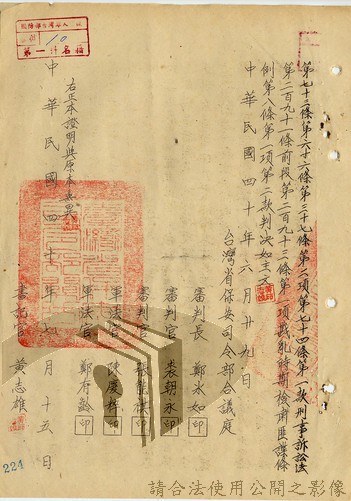 第七十三條第六十六條第三十七條第二項第七十四條第一款刑事訴訟法
第二百九十一條前段第二百九十三條第一項戡亂時期檢肅匪諜條
例第八條第一項第二款判決如主文
中華民國四十年六月廿九日
台灣省保安司令部合議庭
審判長 鄭冰如 印
審判官 裘朝永 印
審判官
軍法官 陳慶粹 印
軍法官 鄭有齡 印
右正本證明與原本無異
中華民國四十年七月十五日
書記官 黃志雄
第一 件名稱
10
221
請合法使用公開之影像